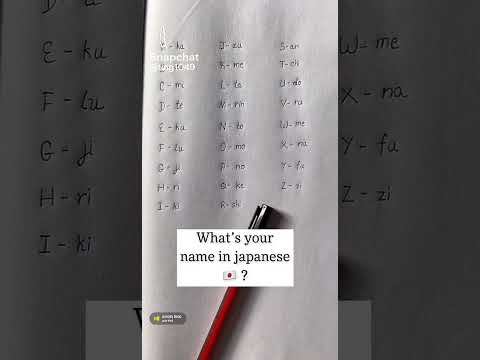 Snapchat
A - ka
C - mi
D - te
E - ku
F - lu
G - ji
H - ri
I - ki
J - zu
K - me
L - ta
M - rin
N - to
O - mo
P - no
Q - ke
R - shi
S - ari
T - chi
U - do
V - ru
W - me
X - na
Y - fu
Z - zi
What's your
name in japanese
🇯🇵 ?
E - ku
F - lu
G - ji
H - ri
I - ki
W - me
X - na
Y - fa
Z - zi